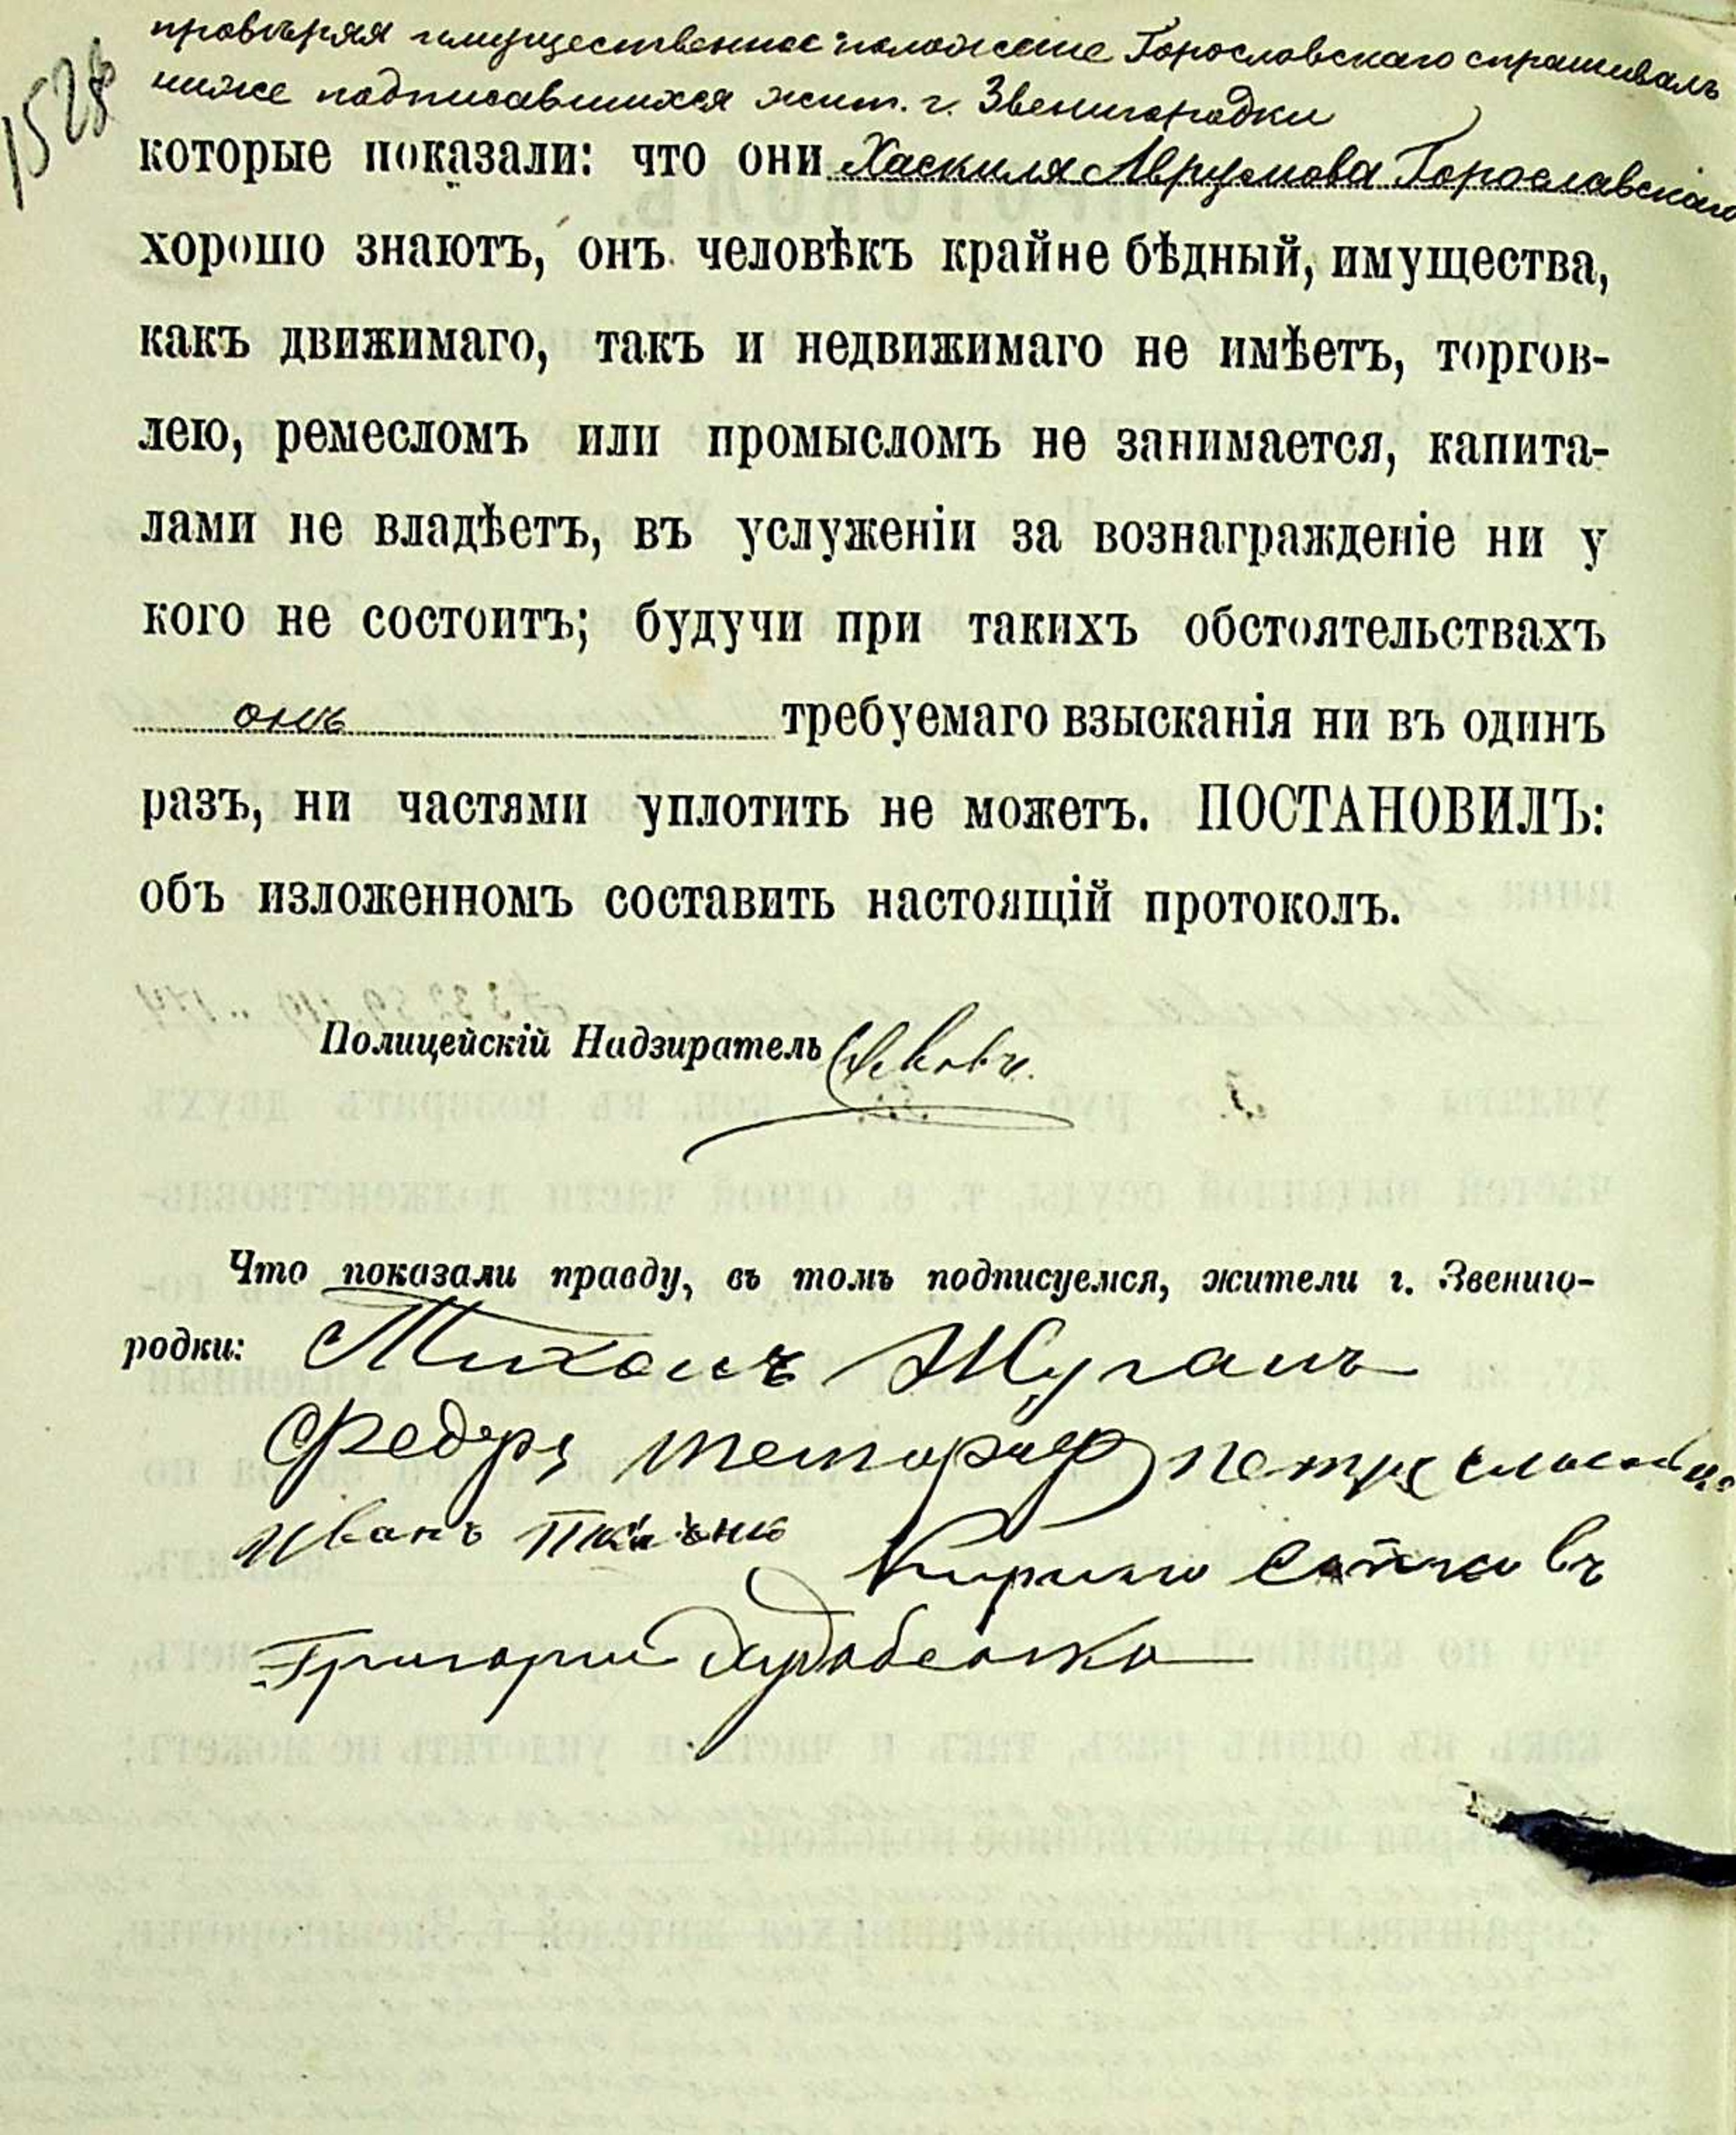 1528
провѣряя имущественное положеніе Горославскаго спрашивалъ
ниже подписавшихся жит. г. Звенигородки
которые показали: что они Хаскиля Аврумова Горославскаго
хорошо знаютъ, онъ человѣкъ крайне бѣдный, имущества,
какъ движимаго, такъ и недвижимаго не имѣетъ, торгов-
лею, ремесломъ или промысломъ не занимается, капита-
лами не владѣетъ, въ услуженіи за вознагражденіе ни у
кого не состоитъ; будучи при такихъ обстоятельствахъ
онъ требуемаго взысканія ни въ одинъ
разъ, ни частями уплотить не можетъ. ПОСТАНОВИЛЪ:
объ изложенномъ составить настоящій протоколъ.
Полицейскій Надзиратель
Что показали правду, въ томъ подписуемся, жители г. Звениго-
родки: Тихонъ Жуганъ
Федоръ Петръ
Иванъ
Кирило
Григорий